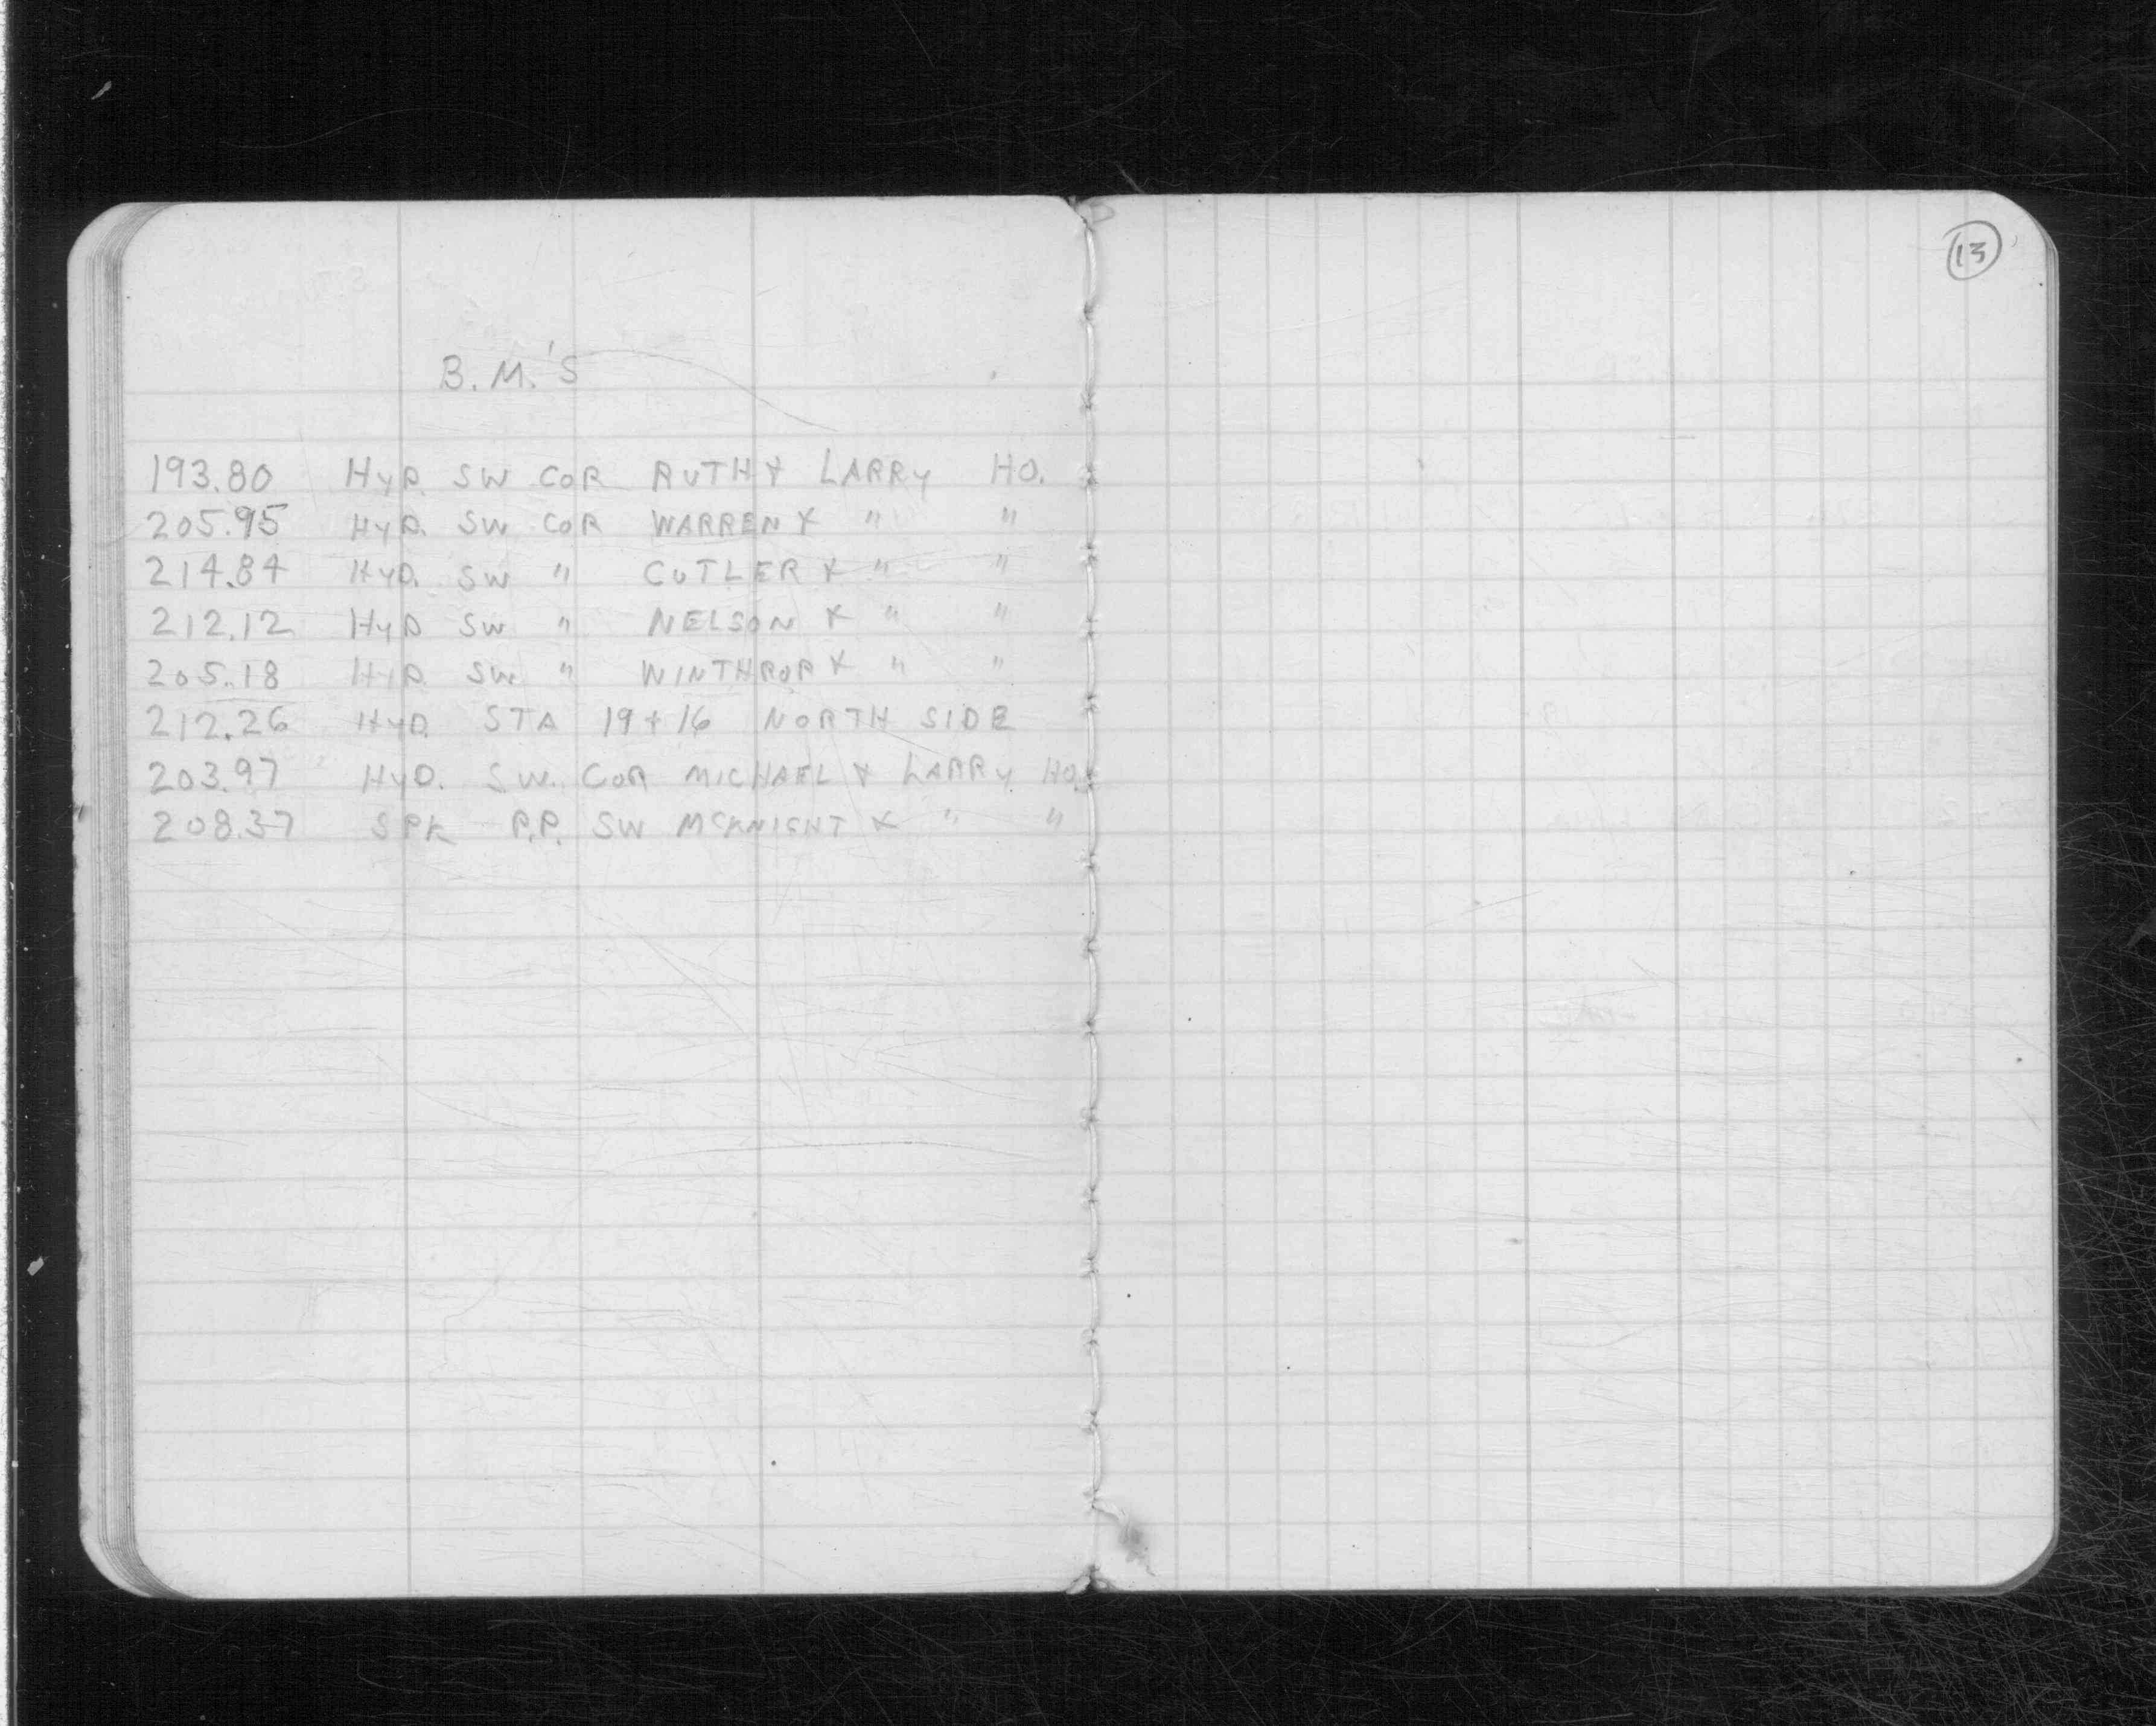 13
B.M.'S
193.80 HYD. SW COR RUTH & LARRY HO.
205.95 HYD. SW COR WARREN & " "
214.84 HYD. SW " CUTLER & " "
212.12 HYD SW " NELSON & " "
205.18 HYD. SW. " WINTHROP & " "
212.26 HYD. STA 19+16 NORTH SIDE
203.97 HYD. SW. COR MICHAEL & LARRY HO.
208.37 SPK P.P. SW MCKNIGHT & " "